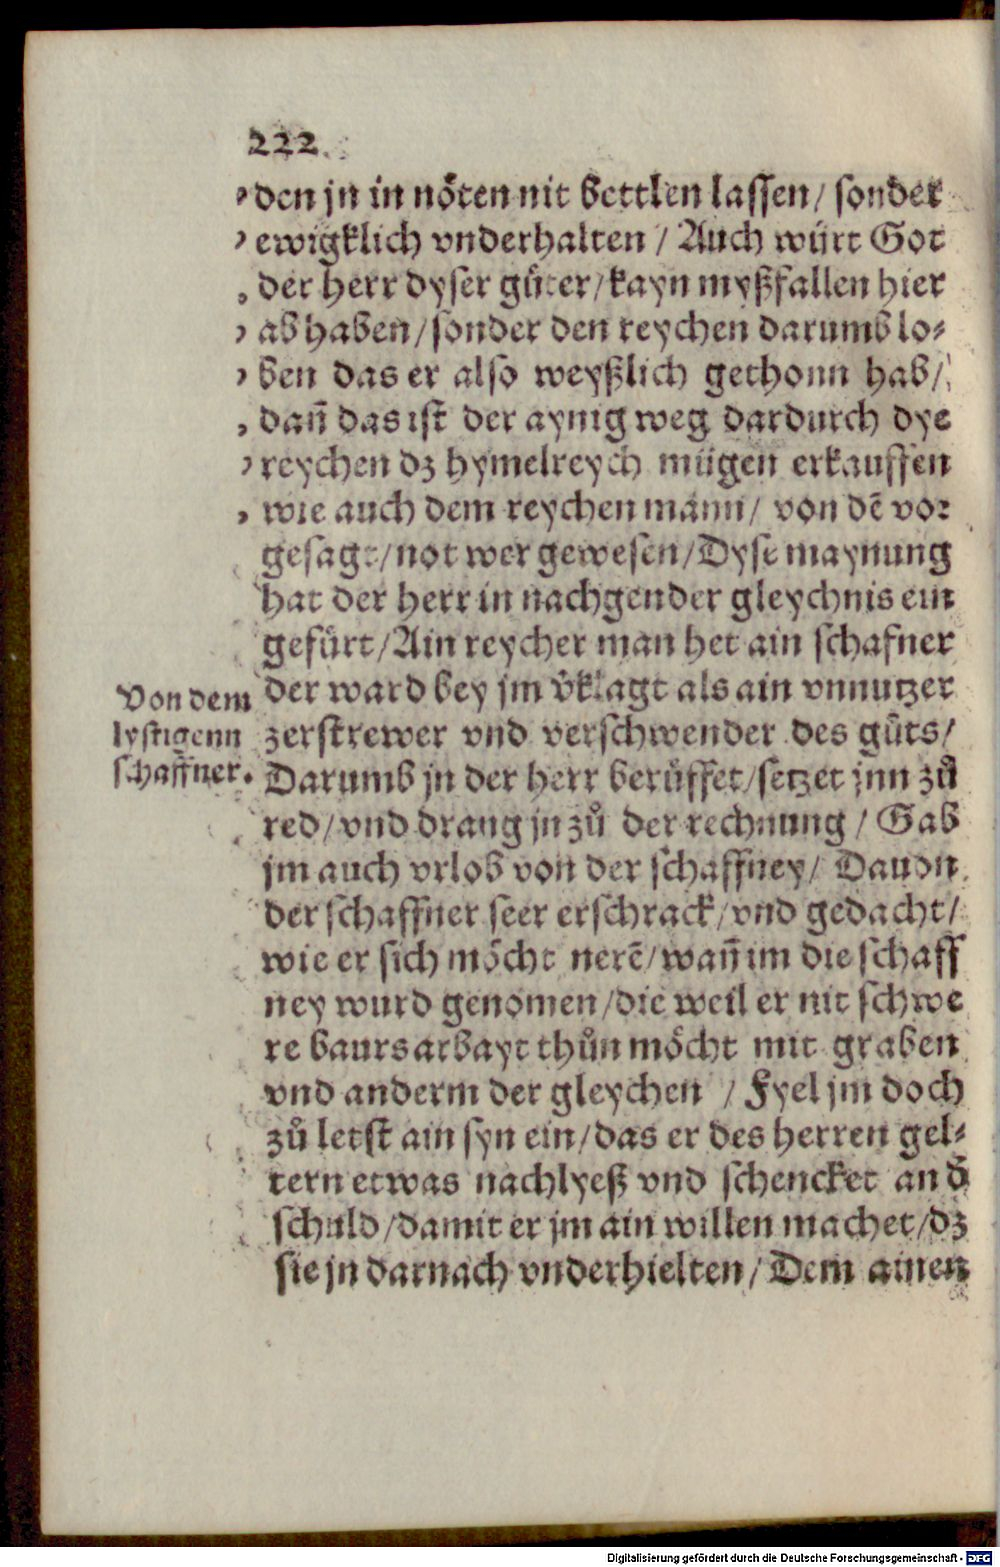 222.
den jn in nöten nit bettlen lassen/ sonder
ewigklich vnderhalten / Auch würt Got
der herr dyser gůter/kayn myßfallen hier
ab haben/sonder den reychen darumb lo⸗
ben das er also weyßlich gethonn hab/
dañ das ist der aynig weg dardurch dye
reychen dz hymelreych mügen erkauffen
wie auch dem reychen mann/ von dē vor
gesagt/not wer gewesen/Dyse maynung
hat der herr in nachgender gleychnis ein
gefürt/Ain reycher man het ain schafner
der ward bey jm v̈klagt als ain vnnutzer
Von dem
lystigenn
schaffner.
zerstrewer vnd verschwender des gůts/
Darumb jn der herr berüffet/setzet jnn zů
red/vnd drang jn zů der rechnung / Gab
jm auch vrlob von der schaffney/ Dauon
der schaffner seer erschrack/vnd gedacht/
wie er sich möcht nerē/wañ im die schaff
ney wurd genomen/die weil er nit schwe
re baurs arbayt thůn möcht mit graben
vnd anderm der gleychen / Fyel jm doch
zů letst ain syn ein/das er des herren gel⸗
tern etwas nachlyeß vnd schencket an d̄
schuld/damit er jm ain willen machet/dz
sie jn darnach vnderhielten/Dem ainen
Digitalisierung gefördert durch die Deutsche Forschungsgemeinschaft - DFG